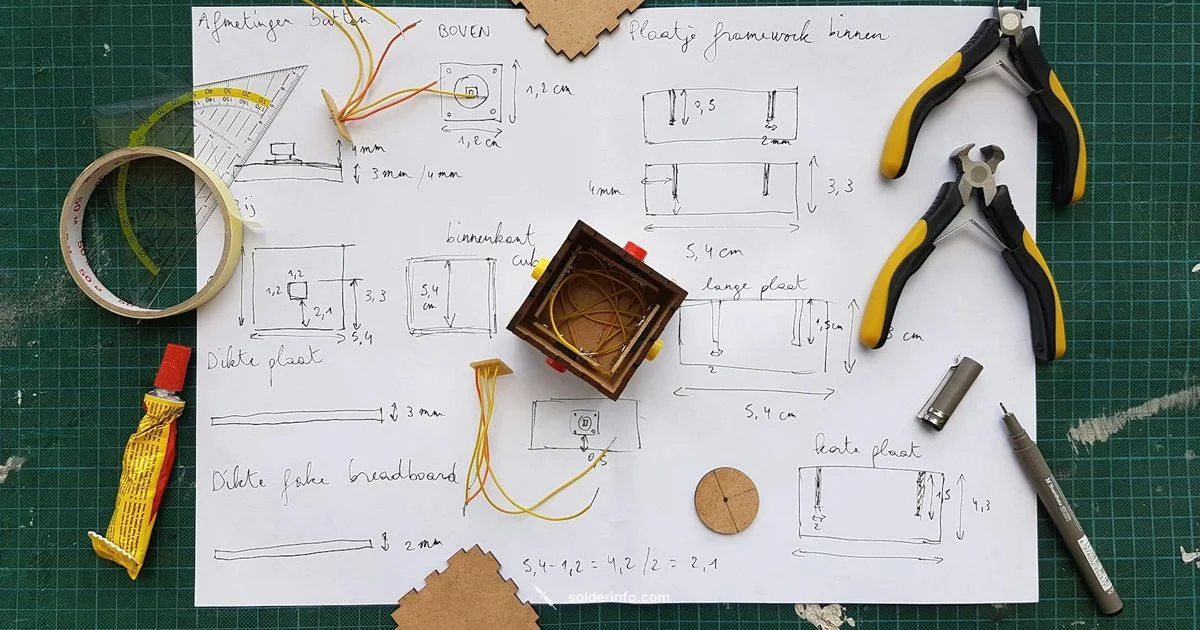 Afmetingen button
BOVEN
Plaatje framework binnen
1,2 cm
1,2 cm
0,5
2mm
4mm
3 mm / 4 mm
4mm
3,3
5,4 cm
binnenkant
cub
1,2
1,2
2,1
3,3
5,4
5,4
cm
lange plaat
1,5cm
3 cm
2
5,4 cm
Dikte plaat
3 mm
0,5
korte plaat
1,5
4,3
2
Dikte fake breadboard
2 mm
5,4-1,2 = 4,2 /2 = 2,1
solderinfo.com
50 M
50 M